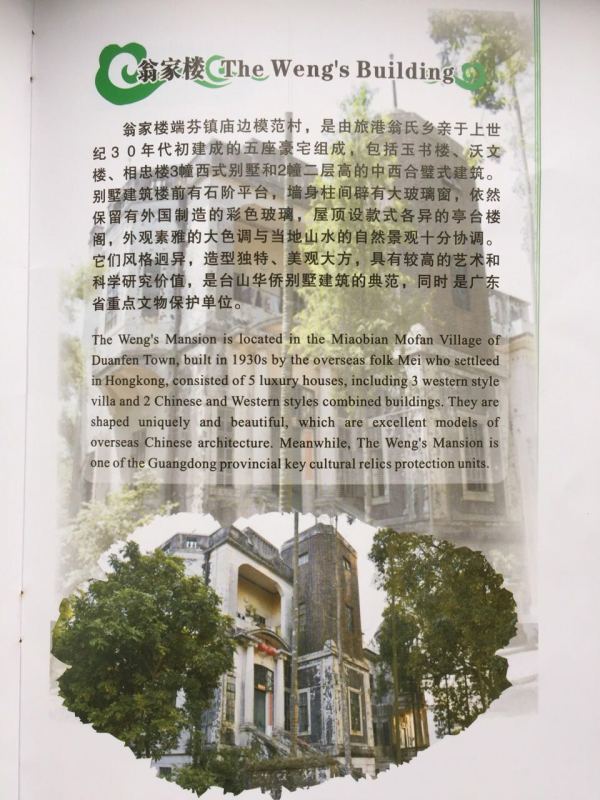 翁家楼 The Weng's Building
翁家楼端芬镇庙边模范村，是由旅港翁氏乡亲于上世
纪30年代初建成的五座豪宅组成，包括玉书楼、沃文
楼、相忠楼3幢西式别墅和2幢二层高的中西合璧式建筑。
别墅建筑楼前有石阶平台，墙身柱间辟有大玻璃窗，依然
保留有外国制造的彩色玻璃，屋顶设款式各异的亭台楼
阁，外观素雅的大色调与当地山水的自然景观十分协调。
它们风格迥异，造型独特、美观大方，具有较高的艺术和
科学研究价值，是台山华侨别墅建筑的典范，同时 是广东
省重点文物保护单位。
The Weng's Mansion is located in the Miaobian Mofan Village of
Duanfen Town, built in 1930s by the overseas folk Mei who settleed
in Hongkong, consisted of 5 luxury houses, including 3 western style
villa and 2 Chinese and Western styles combined buildings. They are
shaped uniquely and beautiful, which are excellent models of
overseas Chinese architecture. Meanwhile, The Weng's Mansion is
one of the Guangdong provincial key cultural relics protection units.